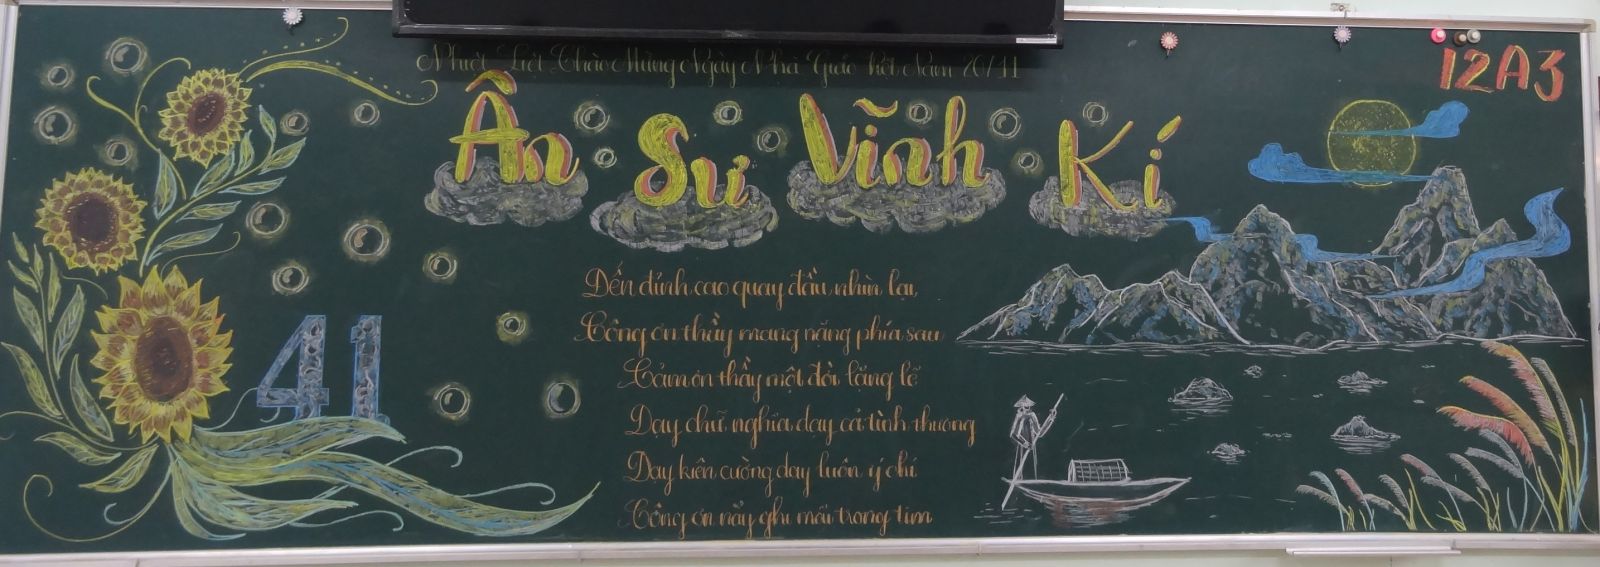 Nhiệt Liệt Chào Mừng Ngày Nhà Giáo Việt Nam 20/11
12A3
Ân Sư Vĩnh Kí
41
Đến đỉnh cao quay đầu nhìn lại,
Công ơn thầy mang nặng phía sau
Cảm ơn thầy một đời lặng lẽ
Dạy chữ nghĩa dạy cả tình thương
Dạy kiên cường dạy luôn ý chí
Công ơn này ghi mãi trong tim